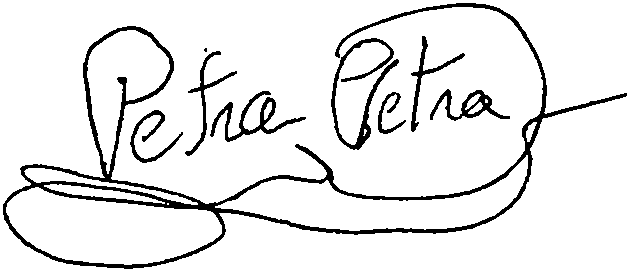 Petra Petra